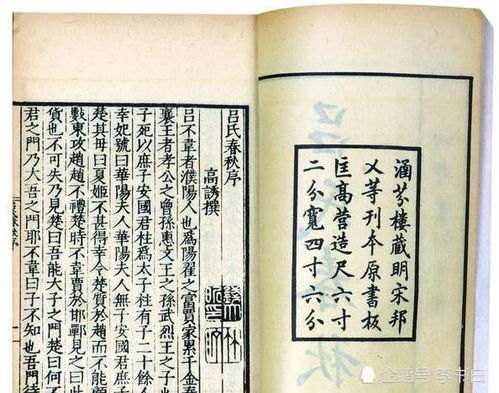 涵芬樓藏明宋邦
乂等刊本原書板
匡高營造尺六寸
二分寬四寸六分
呂氏春秋序
高誘撰
呂不韋者濮陽人也為陽翟之富賈家累千金秦
襄王者孝公之曾孫惠文王之孫武烈王之子也
子死以庶子安國君柱為太子柱有子二十餘人
幸妃號曰華陽夫人華陽夫人無子安國君庶子
楚其母曰夏姬不甚得幸令楚質於趙而不能顧
數東攻趙趙不禮楚時不韋賈於邯鄲見之曰
貨也不可失乃見楚曰吾能大子之門楚曰何不
君之門乃大吾之門耶不韋曰子不知也吾門待
企鹅号 李书白